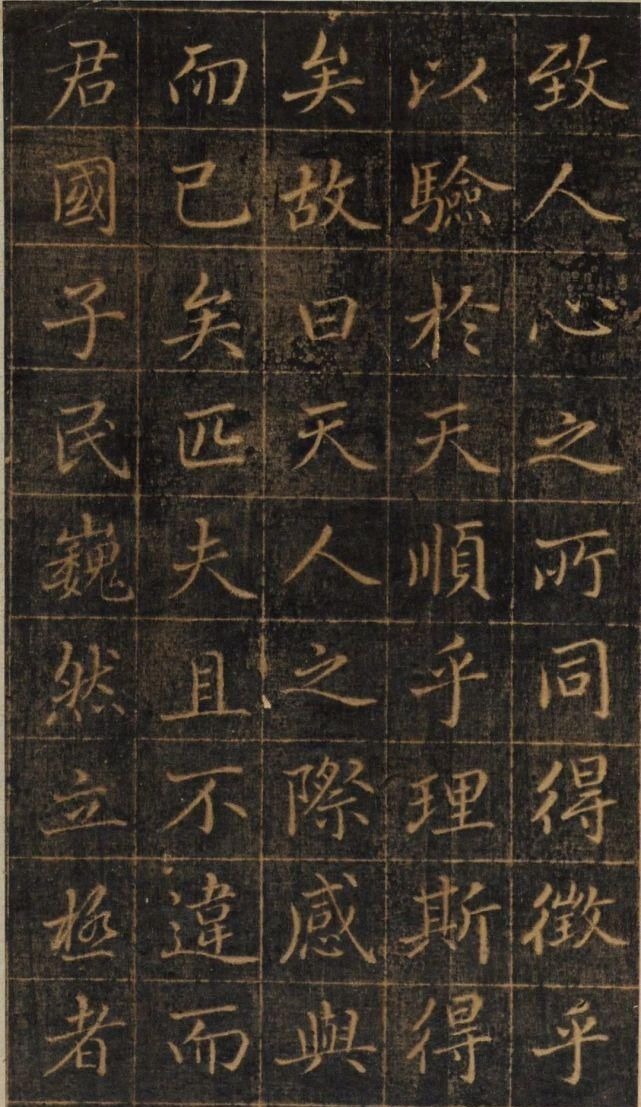 致人心之所同得徵乎
以驗於天順乎理斯得
矣故曰天人之際感與
而已矣匹夫且不違而
君國子民巍然立極者